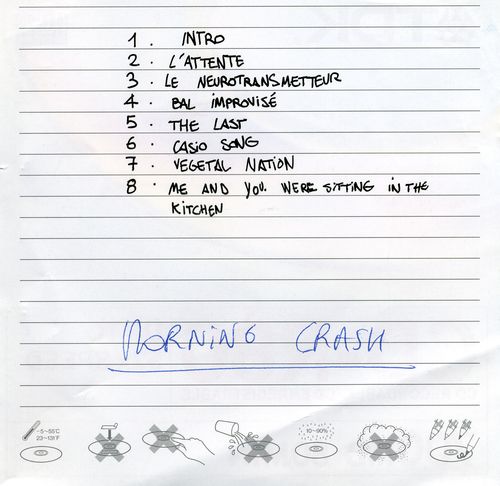 1. INTRO
2. L'ATTENTE
3. LE NEUROTRANSMETTEUR
4. BAL IMPROVISÉ
5. THE LAST
6. CASIO SONG
7. VEGETAL NATION
8. ME AND YOU WERE SITTING IN THE
KITCHEN
MORNING CRASH
-5~55°C
23~131°F
10~90%